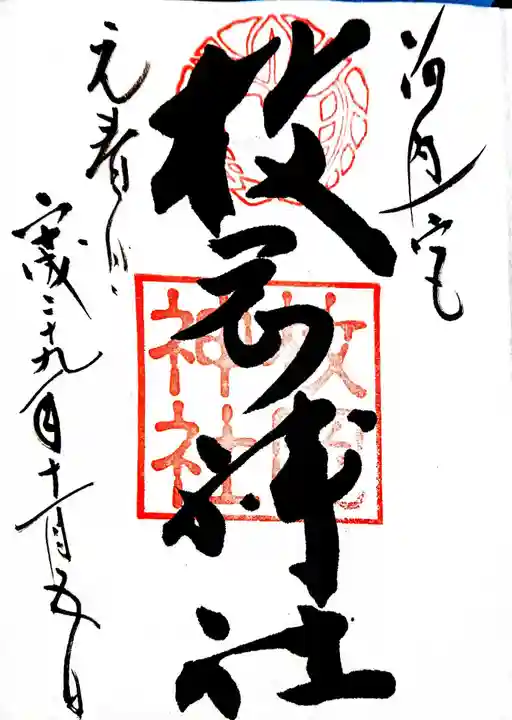 河内一宮
枚岡神社
元春日
平成二十九年十一月五日
枚岡
神社